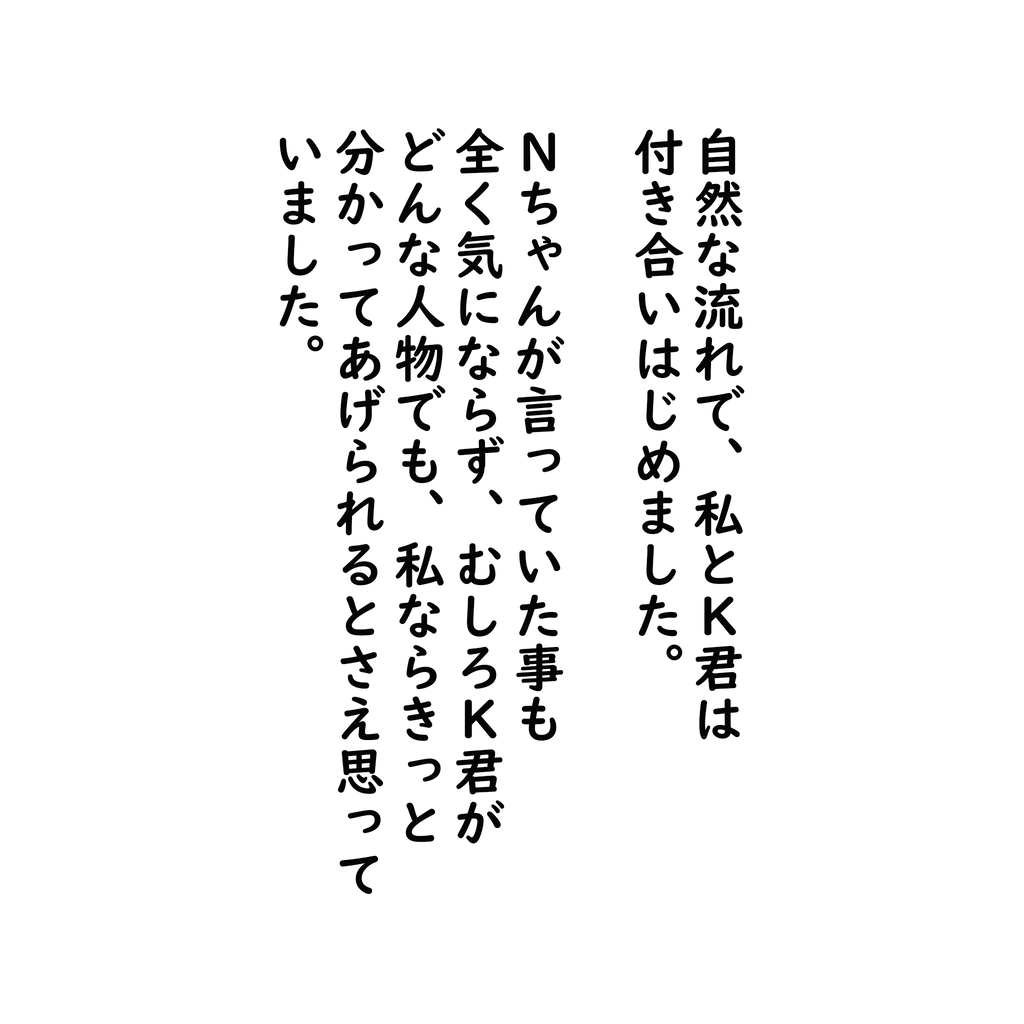 自然な流れで、私とK君は
付き合いはじめました。
Nちゃんが言っていた事も
全く気にならず、むしろK君が
どんな人物でも、私ならきっと
分かってあげられるとさえ思って
いました。